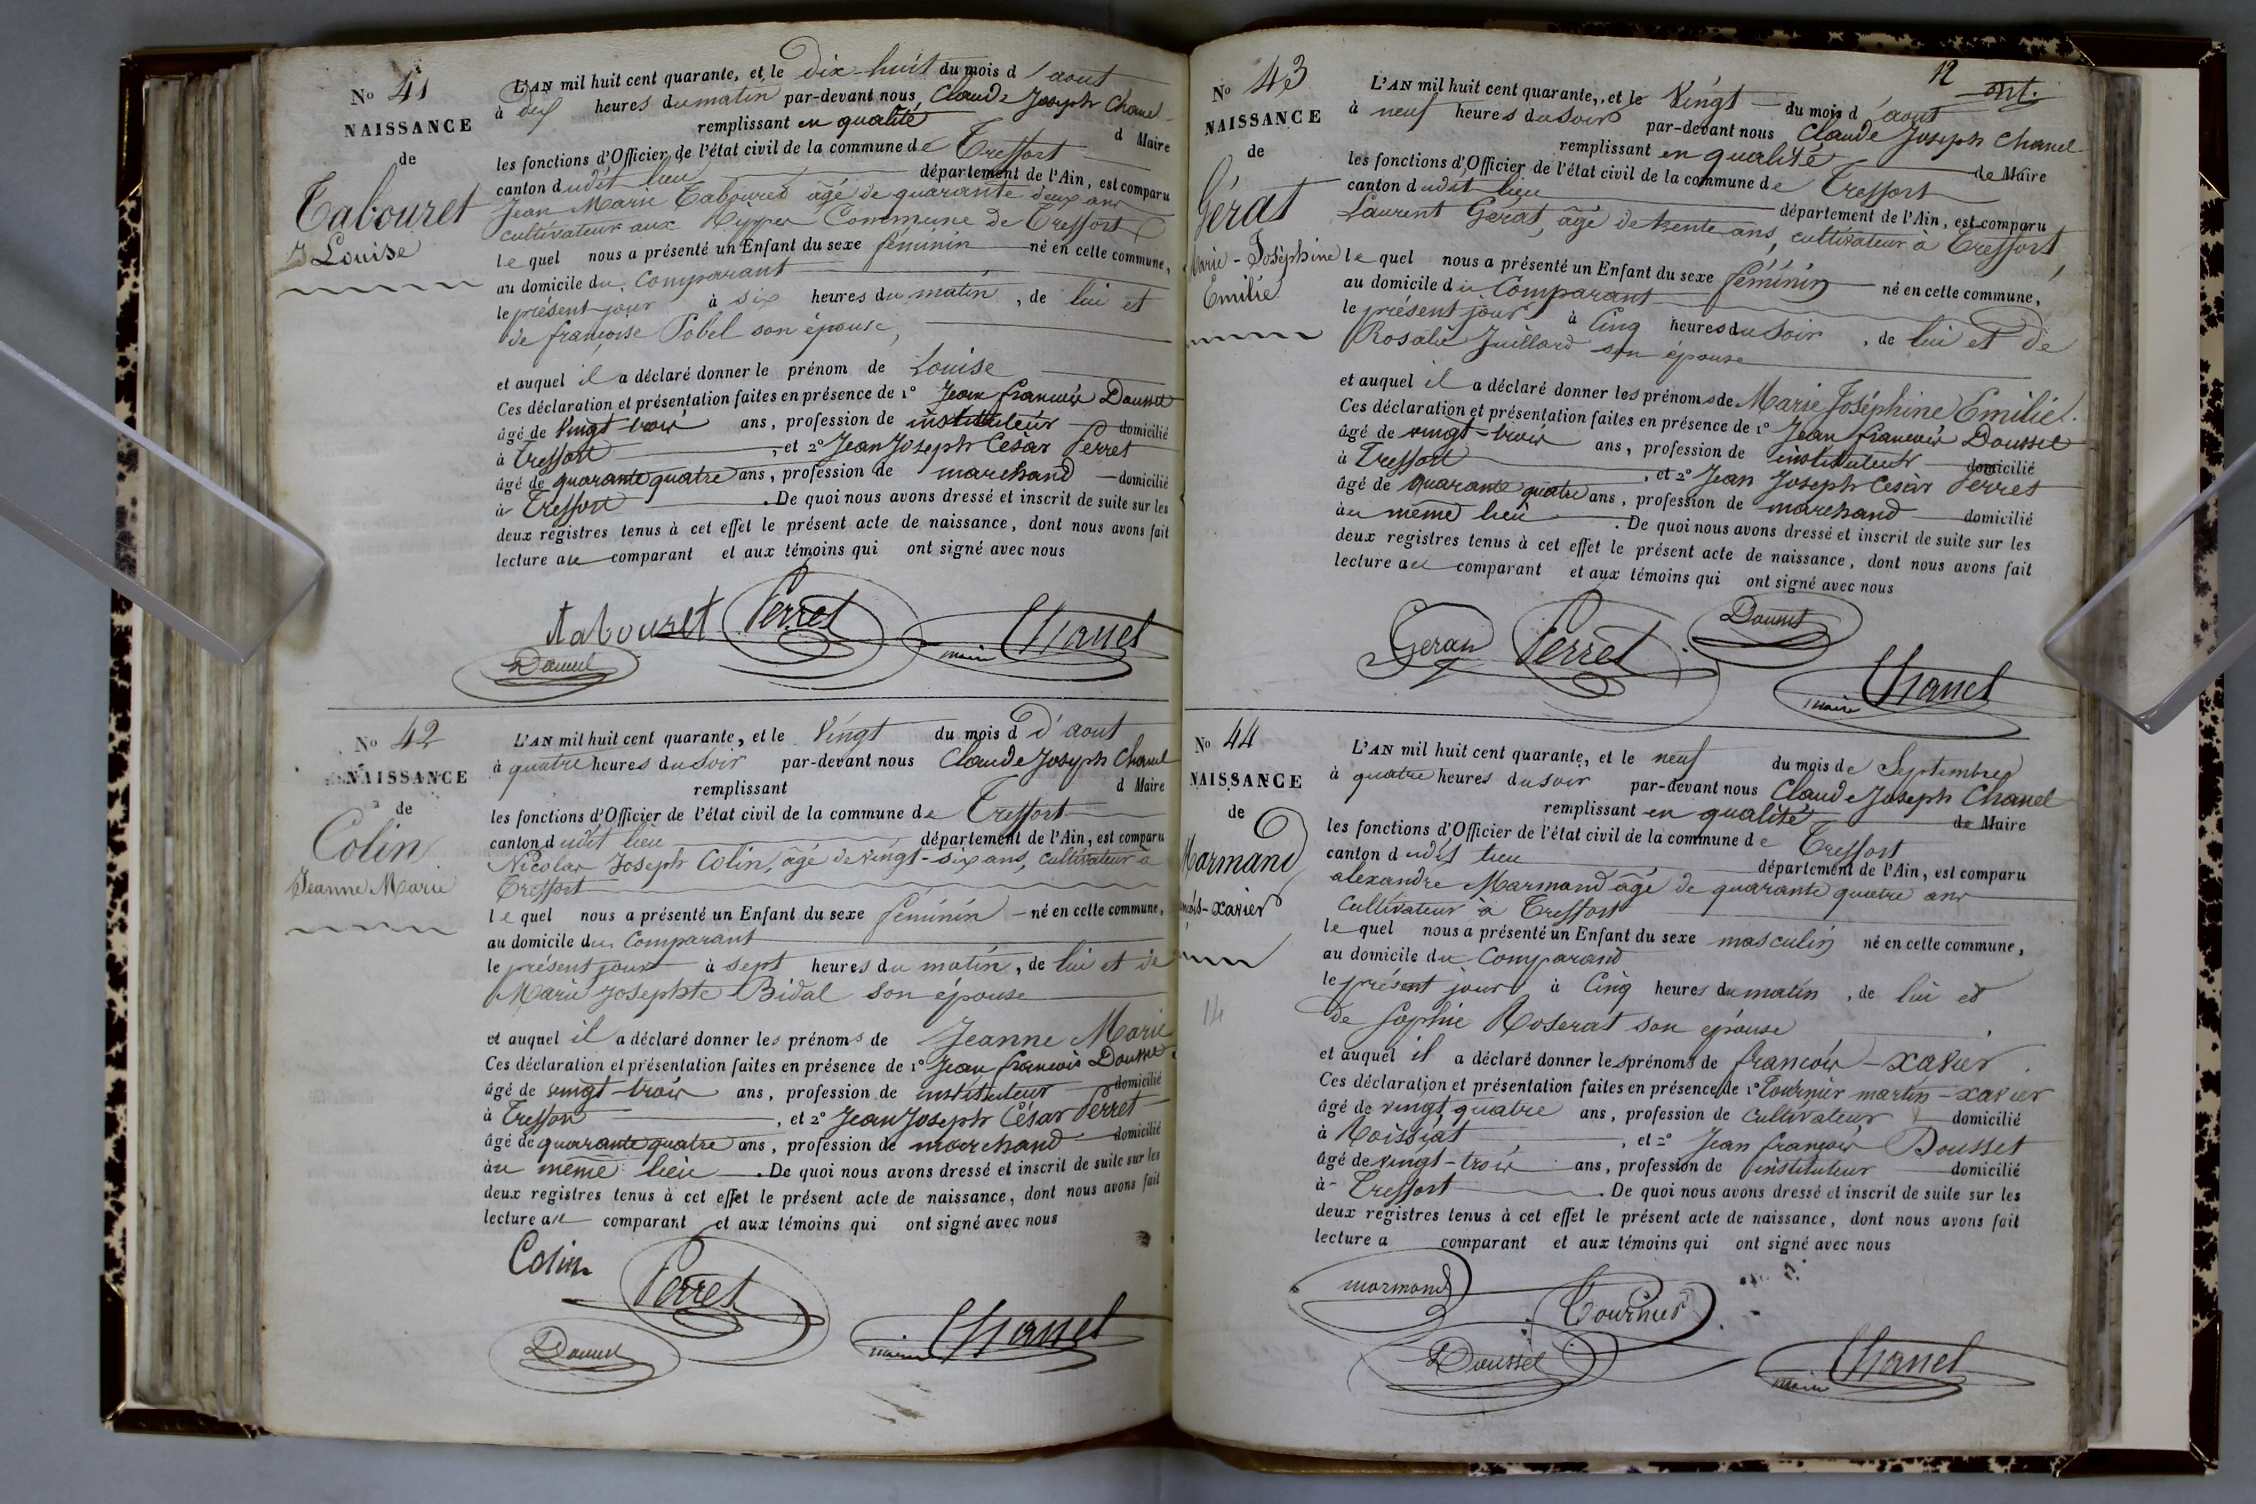 No 41
NAISSANCE
de
Tabouret
Louise
L'AN mil huit cent quarante, et le dix-huit du mois d'aout
à dix heures du matin par-devant nous Claude Joseph Chanel
remplissant en qualité d Maire
les fonctions d'Officier de l'état civil de la commune de Treffort
canton dudit lieu département de l'Ain, est comparu
Jean Marie Tabouret agé de quarante deux ans
cultivateur aux Commune de Treffort
lequel nous a présenté un Enfant du sexe féminin né en cette commune,
au domicile du Comparant
le présent jour à six heures du matin, de lui et
de françoise Pobel son épouse,
et auquel il a déclaré donner le prénom de Louise
Ces déclaration et présentation faites en présence de 1° Jean françois Dousset
âgé de vingt-trois ans, profession de instituteur domicilié
à Treffort, et 2° Jean Joseph César Perret
âgé de quarante quatre ans, profession de marchand domicilié
à Treffort. De quoi nous avons dressé et inscrit de suite sur les
deux registres tenus à cet effet le présent acte de naissance, dont nous avons fait
lecture au comparant et aux témoins qui ont signé avec nous
tabouret Perret maire Chanel
Dousset
No 42
NAISSANCE
de
Colin
Jeanne Marie
L'AN mil huit cent quarante, et le Vingt du mois d d'aout
à quatre heures du soir par-devant nous Claude Joseph Chanel
remplissant d Maire
les fonctions d'Officier de l'état civil de la commune de Treffort
canton dudit lieu département de l'Ain, est comparu
Nicolas Joseph Colin, âgé de vingt-six ans, cultivateur à
Treffort
lequel nous a présenté un Enfant du sexe féminin né en cette commune,
au domicile du Comparant
le présent jour à sept heures du matin, de lui et de
Marie Josephte Bidal son épouse
et auquel il a déclaré donner les prénoms de Jeanne Marie
Ces déclaration et présentation faites en présence de 1° Jean françois Dousset
âgé de vingt-trois ans, profession de instituteur domicilié
à Treffort, et 2° Jean Joseph César Perret
âgé de quarante quatre ans, profession de marchand domicilié
au même lieu. De quoi nous avons dressé et inscrit de suite sur les
deux registres tenus à cet effet le présent acte de naissance, dont nous avons fait
lecture au comparant et aux témoins qui ont signé avec nous
Colin Perret
Dousset maire Chanel
12
No 43
NAISSANCE
de
Gérat
Marie-Joséphine
Emilie
L'AN mil huit cent quarante, et le Vingt du mois d'aout
à neuf heures du soir par-devant nous Claude Joseph Chanel
remplissant en qualité de Maire
les fonctions d'Officier de l'état civil de la commune de Treffort
canton dudit lieu département de l'Ain, est comparu
Laurent Gerat, âgé de trente ans, cultivateur à Treffort,
lequel nous a présenté un Enfant du sexe féminin né en cette commune,
au domicile du Comparant
le présent jour à Cinq heures du soir, de lui et de
Rosalie Juillard son épouse
et auquel il a déclaré donner les prénoms de Marie Joséphine Emilie.
Ces déclaration et présentation faites en présence de 1° Jean françois Dousset
âgé de vingt-trois ans, profession de instituteur domicilié
à Treffort, et 2° Jean Joseph César Perret
âgé de quarante quatre ans, profession de marchand domicilié
au même lieu. De quoi nous avons dressé et inscrit de suite sur les
deux registres tenus à cet effet le présent acte de naissance, dont nous avons fait
lecture au comparant et aux témoins qui ont signé avec nous
Perret Dousset
maire Chanel
No 44
NAISSANCE
de
Marmand
-xavier
14
L'AN mil huit cent quarante, et le neuf du mois de Septembre
à quatre heures du soir par-devant nous Claude Joseph Chanel
remplissant en qualité de Maire
les fonctions d'Officier de l'état civil de la commune de Treffort
canton dudit lieu département de l'Ain, est comparu
alexandre Marmand âgé de quarante quatre ans
Cultivateur à Treffort
lequel nous a présenté un Enfant du sexe masculin né en cette commune,
au domicile du Comparand
le présent jour à Cinq heures du matin, de lui et
de Sophie Roserat son épouse
et auquel il a déclaré donner les prénoms de françois-xavier.
Ces déclaration et présentation faites en présence de 1° Tournier martin-xavier
âgé de vingt quatre ans, profession de Cultivateur domicilié
à Roissiat, et 2° Jean françois Dousset
âgé de vingt-trois ans, profession de instituteur domicilié
à Treffort. De quoi nous avons dressé et inscrit de suite sur les
deux registres tenus à cet effet le présent acte de naissance, dont nous avons fait
lecture a comparant et aux témoins qui ont signé avec nous
marmand Tournier
Dousset maire Chanel